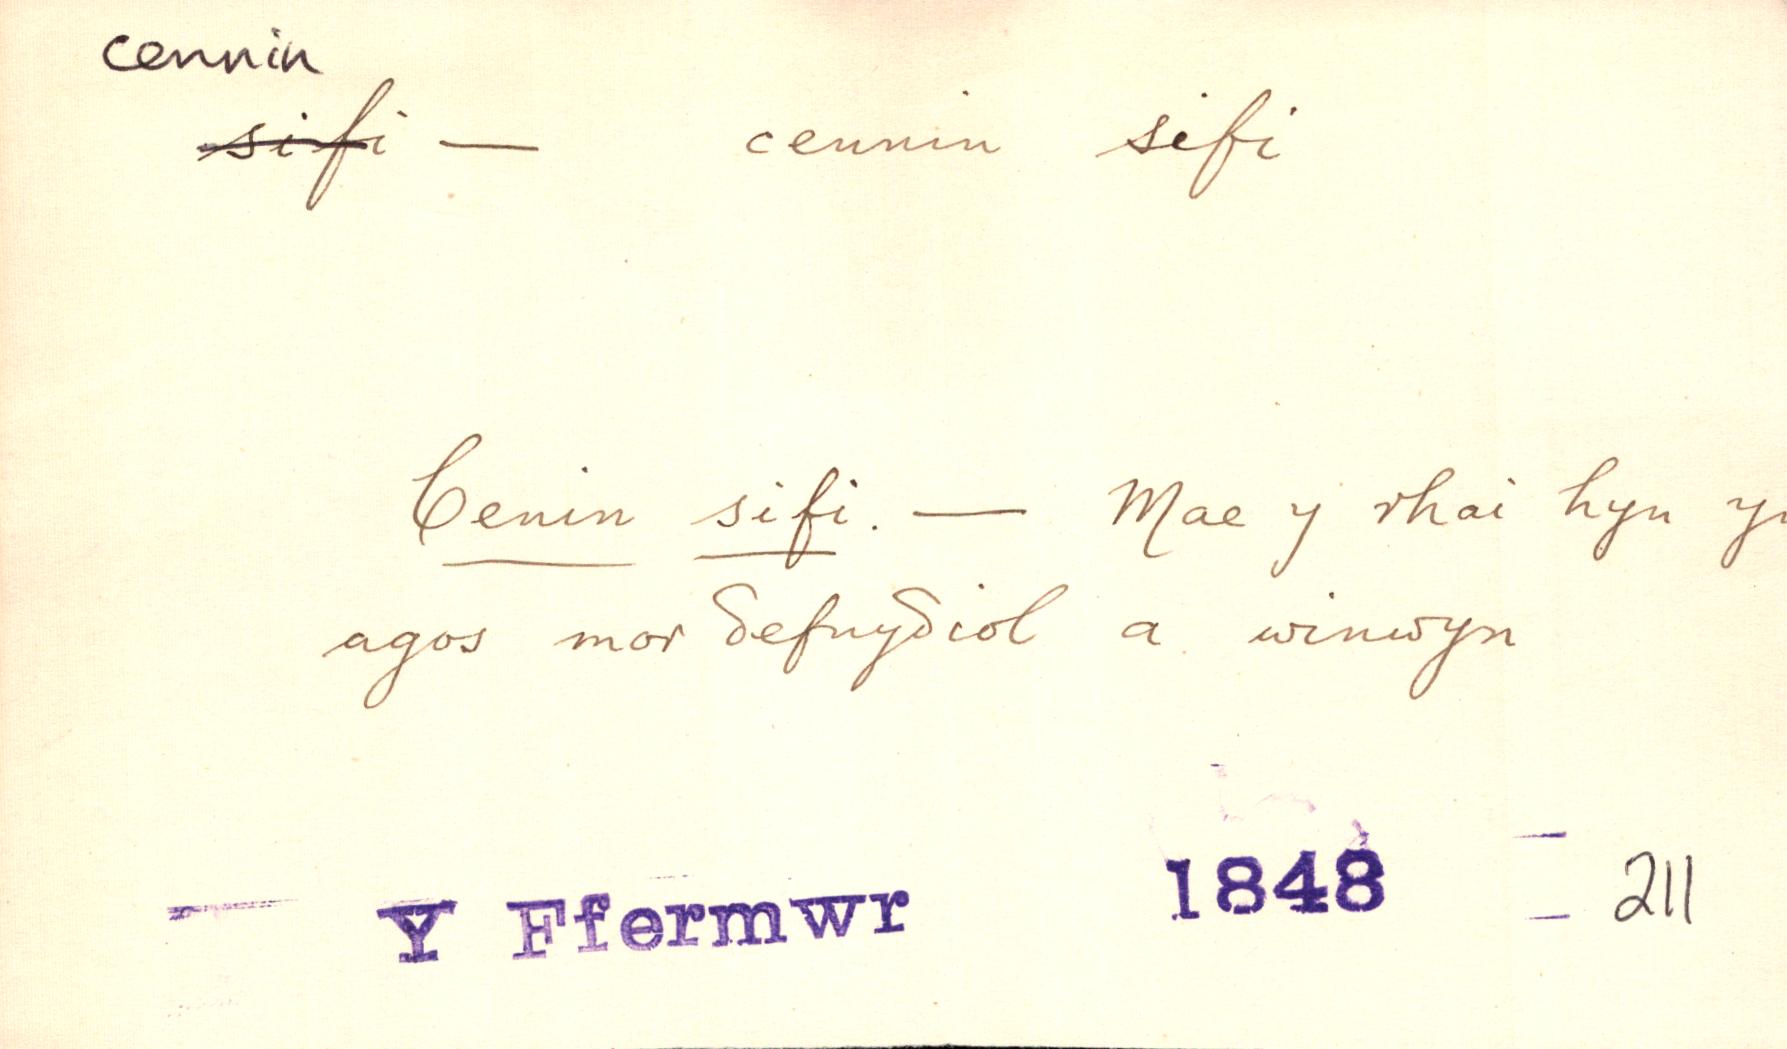 cennin
sifi — cennin sifi
Cenin sifi. — Mae y rhai hyn yn
agos mor δefnyδiol a winwyn
Y Ffermwr 1848 211